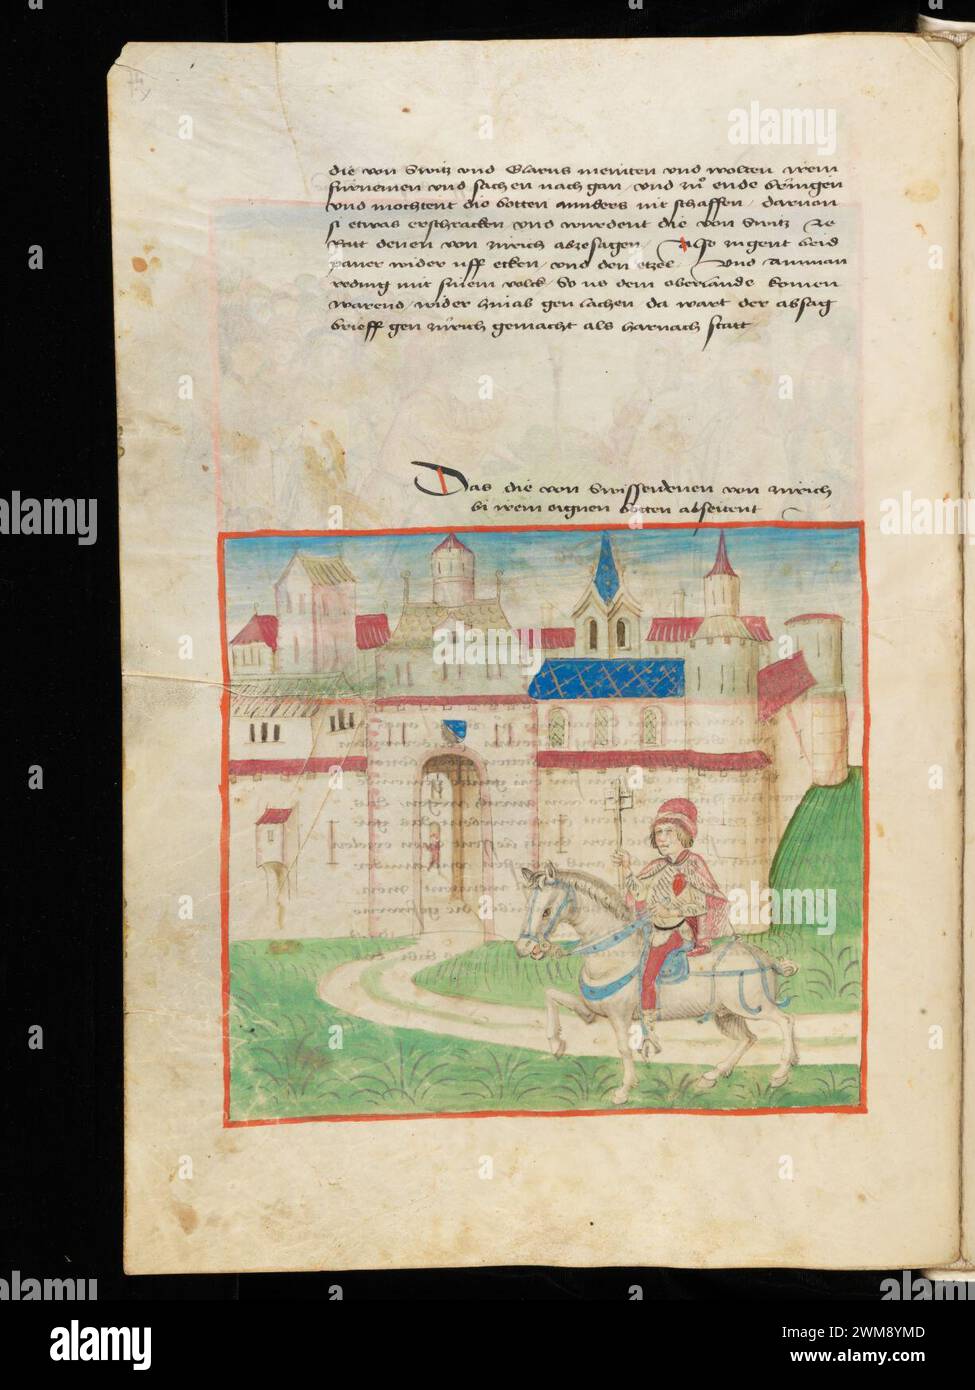 die von Switz und Glarus meinten und wolten irem
fürnemen und sachen nach gan / und zu ende bringen
und mochtent die botten annders nit schaffen / darvon
si etwas erschracken und wurdent die von Switz ze
Rat denen von zürich abzesagen / Also zugent beid
paner wider uff ecken / und den etzel / Und amman
reding mit sinem volck / So us dem oberlande komen
warend / wider hinab gen lachen da wart der absag
brieff gen zürich gemacht als harnach statt
Das die von Switz denen von zürich
bi irem eignen botten abseitent
alamy
Image ID: 2WM8YMD
www.alamy.com